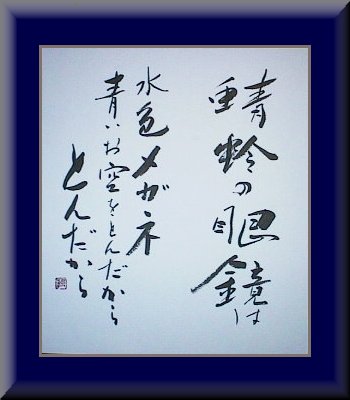 蜻蛉の眼鏡は
水色メガネ
青いお空をとんだから
とんだから